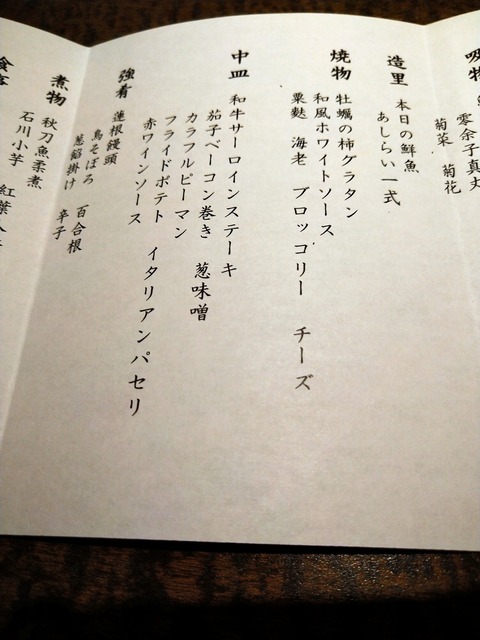 吸物
零余子真丈
菊菜　菊花
造里
本日の鮮魚
あしらい一式
焼物
牡蠣の柿グラタン
和風ホワイトソース
粟麩　海老　ブロッコリー　チーズ
中皿
和牛サーロインステーキ
茄子ベーコン巻き　葱味噌
カラフルピーマン
フライドポテト　イタリアンパセリ
赤ワインソース
強肴
蓮根饅頭
鳥そぼろ　百合根
葱餡掛け　辛子
煮物
秋刀魚柔煮
石川小芋　紅葉人参
食事